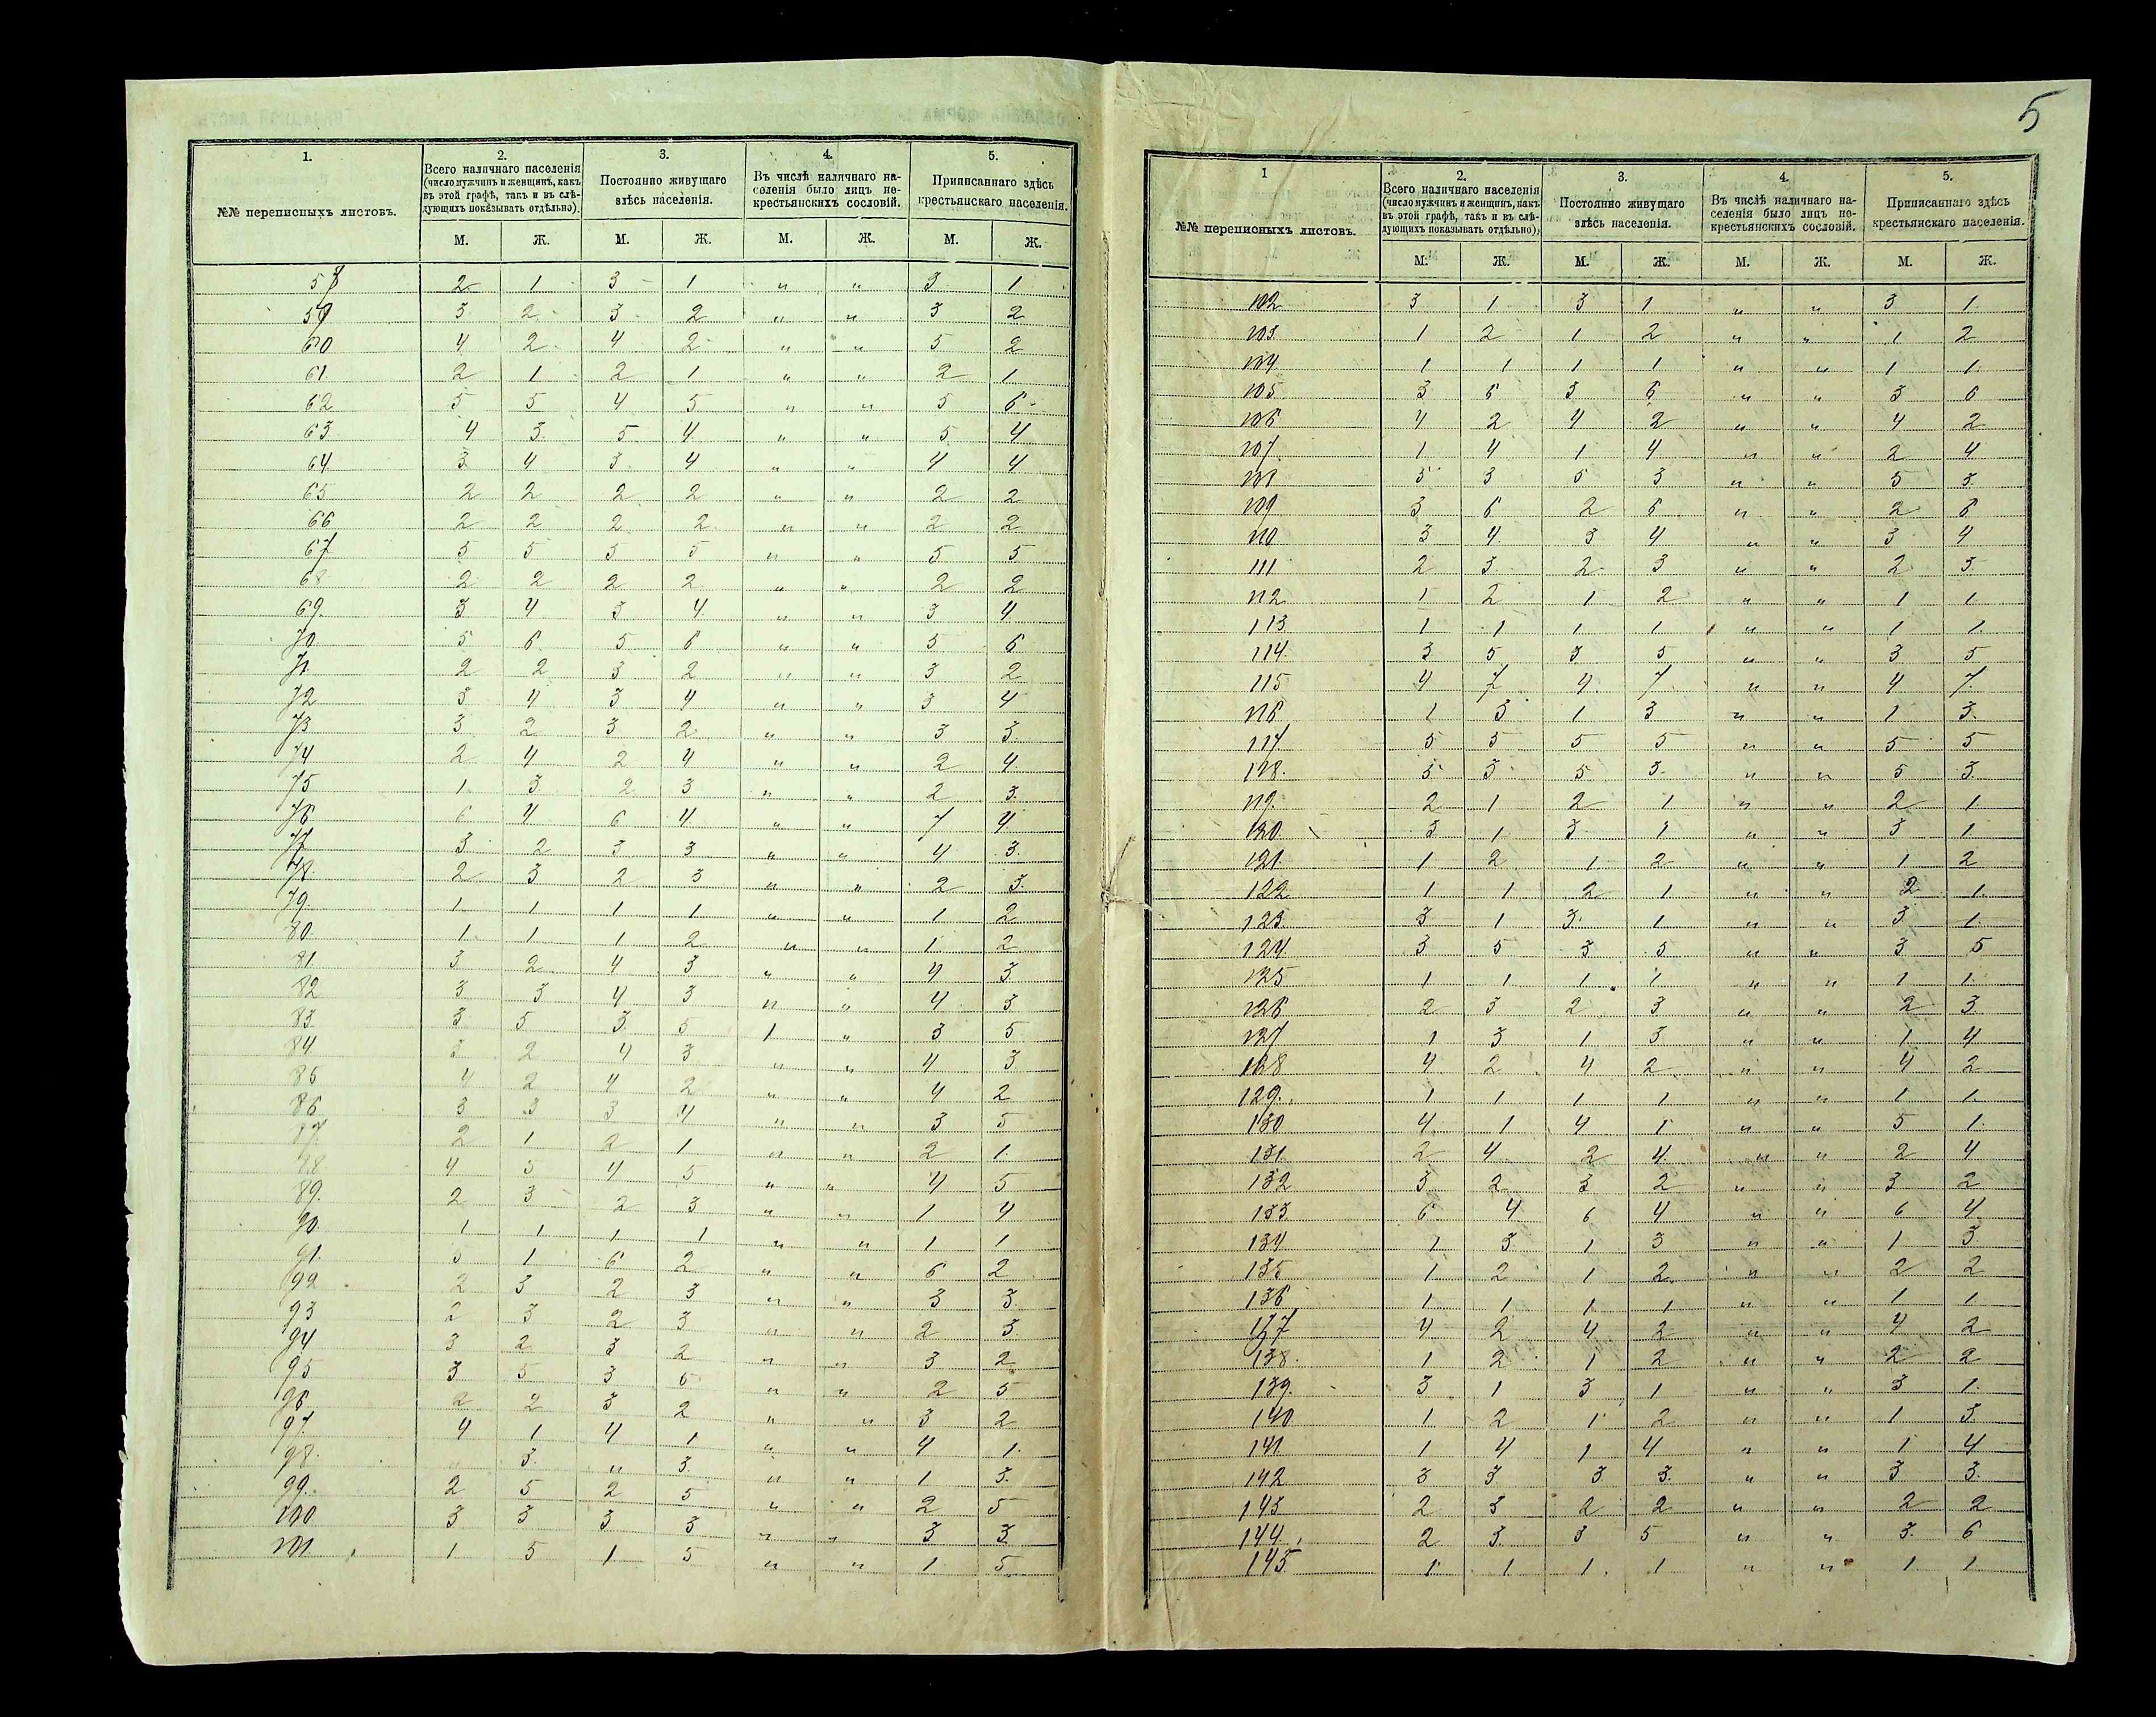 5
1. 2. 3. 4. 5.
№№ переписныхъ листовъ. Всего наличнаго населенія (число мужчинъ и женщинъ, какъ въ этой графѣ, такъ и въ слѣдующихъ показывать отдѣльно). Постоянно живущаго здѣсь населенія. Въ числѣ наличнаго населенія было лицъ некрестьянскихъ сословій. Приписаннаго здѣсь крестьянскаго населенія.
М. Ж. М. Ж. М. Ж. М. Ж.
58 2 1 3 1 " " 3 1
59 3 2 3 2 " " 3 2
60 4 2 4 2 " " 5 2
61. 2 1 2 1 " " 2 1
62 5 5 4 5 " " 5 6
63 4 3 5 4 " " 5 4
64 3 4 3 4 " " 4 4
65 2 2 2 2 " " 2 2
66 2 2 2 2 " " 2 2
67 5 5 5 5 " " 5 5
68 2 2 2 2 " " 2 2
69. 3 4 3 4 " " 3 4
70 5 6 5 6 " " 5 6
71 2 2 3 2 " " 3 2
72 3 4 3 4 " " 3 4
73 3 2 3 2 " " 3 3
74 2 4 2 4 " " 2 4
75 1 3 2 3 " " 2 3.
76 6 4 6 4 " " 7 4
77 3 2 3 3 " " 4 3.
78. 2 3 2 3 " " 2 3.
79. 1 1 1 1 " " 1 2
80. 1 1 1 2 " " 1 2
81. 3 2 4 3 " " 4 3
82 3 3 4 3 " " 4 3
83. 3 5 3 5 1 " 3 5
84. 3 2 4 3 " " 4 3
85 4 2 4 2 " " 4 2
86 3 3 3 4 " " 3 5
87. 2 1 2 1 " " 2 1.
88 4 5 4 5 " " 4 5
89. 2 3 2 3 " " 1 4
90 1 1 1 1 " " 1 1
91. 5 1 6 2 " " 6 2
92 2 3 2 3 " " 3 3
93 2 3 2 3 " " 2 3
94 3 2 3 2 " " 3 2
95 3 5 3 5 " " 2 5
96 2 2 3 2 " " 3 2
97. 4 1 4 1 " " 4 1.
98. " 3. " 3. " " 1 3.
99. 2 5 2 5 " " 2 5
100 3 3 3 3 " " 3 3.
101. 1 5 1 5 " " 1 5.
1 2. 3. 4. 5.
№№ переписныхъ листовъ. Всего наличнаго населенія (число мужчинъ и женщинъ, какъ въ этой графѣ, такъ и въ слѣдующихъ показывать отдѣльно). Постоянно живущаго здѣсь населенія. Въ числѣ наличнаго населенія было лицъ некрестьянскихъ сословій. Приписаннаго здѣсь крестьянскаго населенія.
М. Ж. М. Ж. М. Ж. М. Ж.
102 3 1 3 1 " " 3 1.
103. 1 2 1 2 " " 1 2
104 1 1 1 1 " " 1 1.
105 3 6 3 6 " " 3 6
106 4 2 4 2 " " 4 2
107 1 4 1 4 " " 2 4
108 5 3 5 3 " " 5 3.
109 3 6 2 6 " " 2 6
110 3 4. 3 4 " " 3 4
111 2 3 2 3 " " 2 3
112 1 2 1 2 " " 1 1.
113 1 1 1 1 " " 1 1.
114. 3 5 3 5 " " 3 5
115 4 7 4 7 " " 4 7.
116 1 3 1 3 " " 1 3.
117 5 5 5 5 " " 5 5
118. 5 3 5 3 " " 5 3.
119. 2 1 2 1 " " 2 1.
120 3 1 3 1 " " 3 1.
121. 1 2 1 2 " " 1 2
122 1 1 2 1 " " 2 1.
123. 3 1 3. 1 " " 3 1.
124. 3 5 3 5 " " 3 5
125 1 1 1 1 " " 1 1.
126 2 3 2 3 " " 2 3.
127 1 3 1 3 " " 1 4
128 4 2 4 2 " " 4 2
129. 1 1 1 1 " " 1 1.
130 4 1 4 1 " " 5 1.
131. 2 4 2 4 " " 2 4
132 3 2 3 2 " " 3 2
133. 6 4 6 4 " " 6 4
134 1 3 1 3 " " 1 3.
135 1 2 1 2 " " 2 2
136 1 1 1 1 " " 1 1.
137 4 2 4 2 " " 4 2
138. 1 2 1 2 " " 2 2
139. 3 1 3 1 " " 3 1.
140 1 2 1 2 " " 1 3.
141 1 4 1 4 " " 1 4
142 3 3 3 3. " " 3 3.
143 2 3 2 2 " " 2 2
144. 2 3. 3 5 " " 3. 6
145. 1 1 1 1 " " 1 1.